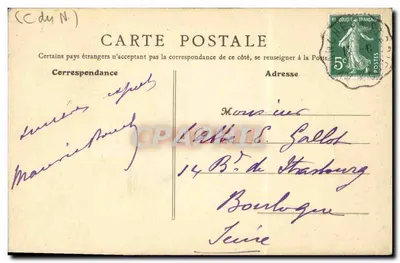 (C. du N.)
CARTE POSTALE
Certains pays étrangers n'acceptant pas la correspondance de ce côté, se renseigner à la Poste
Correspondance
Adresse
5c
POSTES
Sincères
Maurice
Monsieur
L'Abbé E. Gallot
14 Bd. de Strasbourg
Boulogne
Seine
CPARAMA